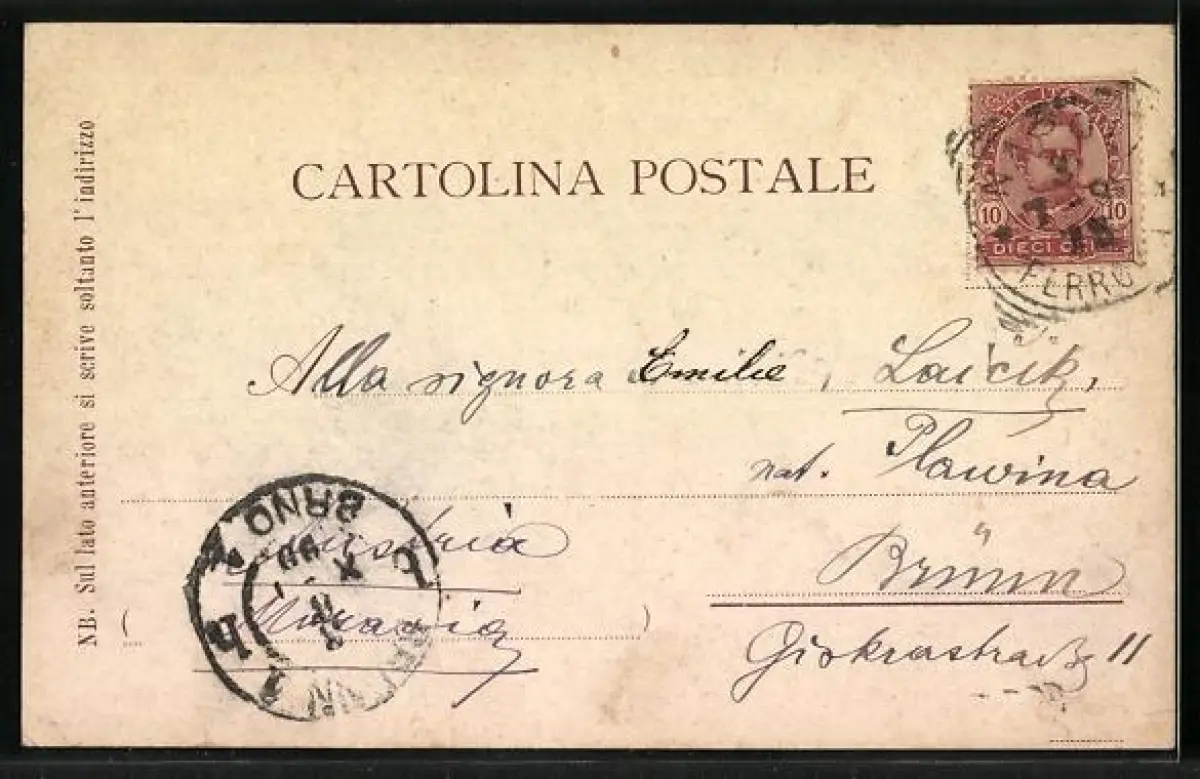 CARTOLINA POSTALE
NB. Sul lato anteriore si scrive soltanto l'indirizzo
POSTE ITALIANE
10 10
DIECI
FERRO
Alla signora Emilie,
nat. Plawina
Austria
Brünn
Moravia
Giskrastraße 11
BRNO
BRÜNN